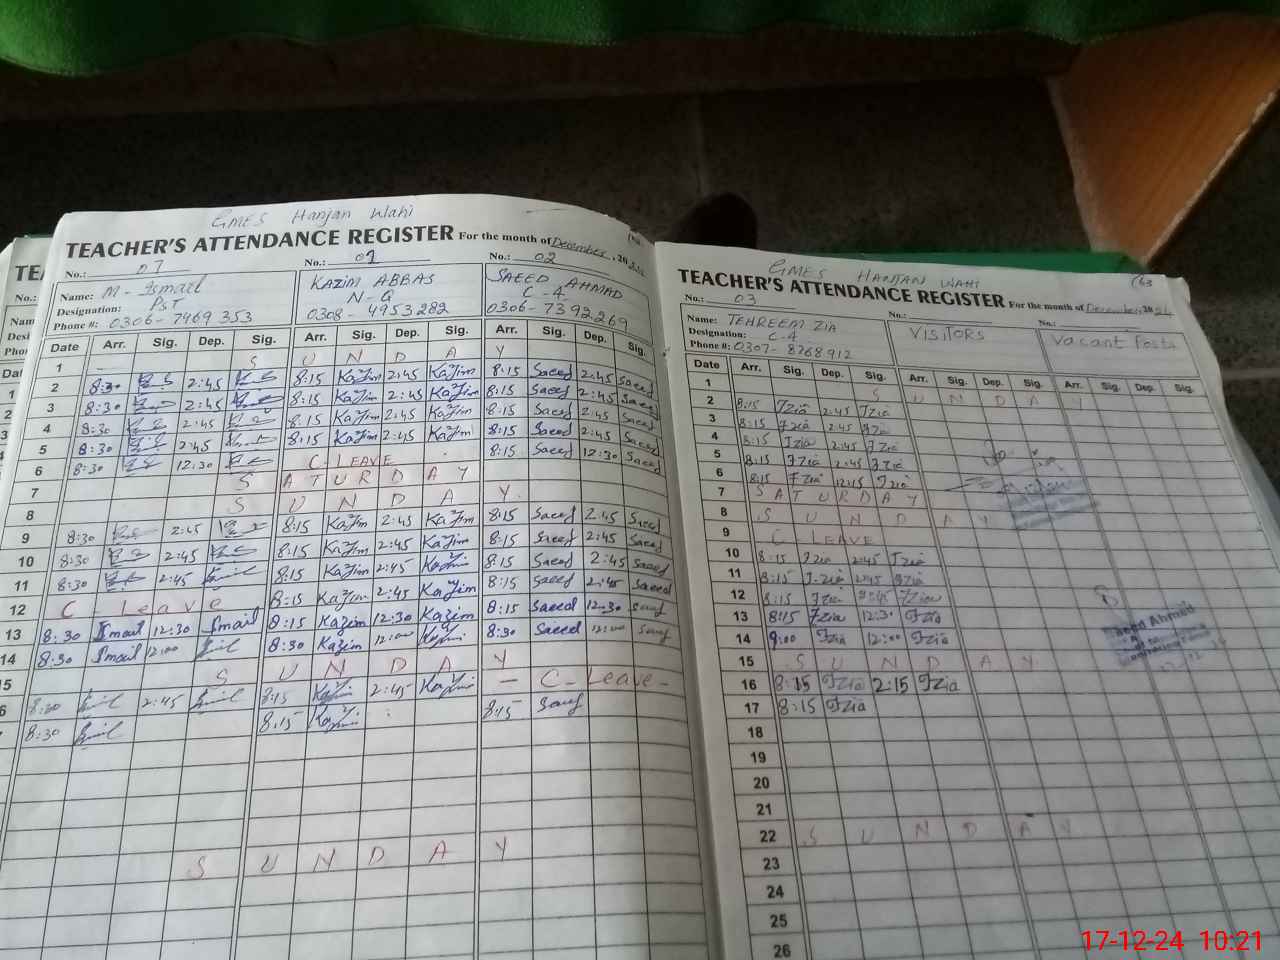 GMES Hanjan Wahi
TEACHER'S ATTENDANCE REGISTER For the month of December, 20
No.: 07 No.: 01 No.: 02
Name: M-Ismail KAZIM ABBAS SAEED AHMAD
Designation: PST N-Q C-4
Phone #: 0306-7469353 0308-4953282 0306-7392269
Date Arr. Sig. Dep. Sig. Arr. Sig. Dep. Sig. Arr. Sig. Dep. Sig.
1 S U N D A Y
2 8:30 2:45 8:15 Kazim 2:45 Kazim 8:15 Saeed 2:45 Saeed
3 8:30 2:45 8:15 Kazim 2:45 Kazim 8:15 Saeed 2:45 Saeed
4 8:30 2:45 8:15 Kazim 2:45 Kazim 8:15 Saeed 2:45 Saeed
5 8:30 2:45 8:15 Kazim 2:45 Kazim 8:15 Saeed 2:45 Saeed
6 8:30 12:30 C-LEAVE 8:15 Saeed 12:30 Saeed
7 S A T U R D A Y
8 S U N D A Y
9 8:30 2:45 8:15 Kazim 2:45 Kazim 8:15 Saeed 2:45 Saeed
10 8:30 2:45 8:15 Kazim 2:45 Kazim 8:15 Saeed 2:45 Saeed
11 8:30 2:45 8:15 Kazim 2:45 Kazim 8:15 Saeed 2:45 Saeed
12 C-Leave 8:15 Kazim 2:45 Kazim 8:15 Saeed 2:45 Saeed
13 8:30 Ismail 12:30 Ismail 8:15 Kazim 12:30 Kazim 8:15 Saeed 12:30
14 8:30 Ismail 12:00 8:30 Kazim 12:00 Kazim 8:30 Saeed 12:00
15 S U N D A Y
8:30 2:45 8:15 Kazim 2:45 Kazim - C-Leave -
8:30 8:15 Kazim 8:15
S U N D A Y
GMES HANJAN WAHI
TEACHER'S ATTENDANCE REGISTER For the month of December 2024
No.: 03 No.: No.:
Name: TEHREEM ZIA VISITORS Vacant Posts
Designation: C-4
Phone #: 0307-8768912
Date Arr. Sig. Dep. Sig. Arr. Sig. Dep. Sig. Arr. Sig. Dep. Sig.
1 S U N D A Y
2 8:15 Tzia 2:45 Tzia
3 8:15 Tzia 2:45 Tzia
4 8:15 Tzia 2:45 Tzia
5 8:15 Tzia 2:45 Tzia
6 8:15 Tzia 12:15 Tzia
7 S A T U R D A Y
8 S U N D A Y
9 C-LEAVE
10 8:15 Tzia 2:45 Tzia
11 8:15 Tzia 2:45 Tzia
12 8:15 Tzia 2:45 Tzia
13 8:15 Tzia 12:30 Tzia
14 9:00 Tzia 12:00 Tzia
15 S U N D A Y
16 8:15 Tzia 2:15 Tzia
17 8:15 Tzia
18
19
20
21
22 S U N D A Y
23
24
25
26
Saeed Ahmad
17-12-24 10:21